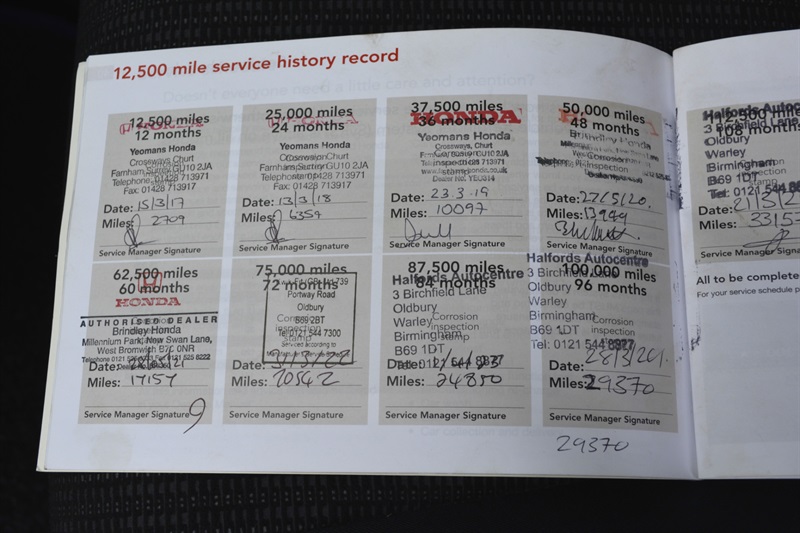 12,500 mile service history record
12,500 miles
12 months
Yeomans Honda
Crossways, Churt
Farnham, Surrey GU10 2JA
Telephone: 01428 713917
Fax: 01428 713917
Date: 15/3/17
Miles: 2709
Service Manager Signature
25,000 miles
24 months
Yeomans Honda
Crossways, Churt
Farnham, Surrey GU10 2JA
Telephone: 01428 713917
Fax: 01428 713917
Date: 13/3/18
Miles: 6354
Service Manager Signature
37,500 miles
HONDA
36 months
Yeomans Honda
Crossways, Churt
Farnham, Surrey GU10 2JA
Date: 23.3.19
Miles: 10097
Service Manager Signature
50,000 miles
48 months
Brindley Honda
Corrosion
Inspection
Date: 27/5/20.
Miles: 13949
Service Manager Signature
62,500 miles
60 months
HONDA
AUTHORISED DEALER
Brindley Honda
Millennium Park, New Swan Lane,
West Bromwich B70 0NR
Date:
Miles: 17157
Service Manager Signature
9
75,000 miles
72 months
Portway Road
Oldbury
B69 2BT
Corrosion
inspection
stamp
Tel: 0121 544 7300
Serviced according to
Date:
Miles: 20542
Service Manager Signature
87,500 miles
84 months
Halfords Autocentre
3 Birchfield Lane
Oldbury
Warley
Birmingham
B69 1DT
Corrosion
inspection
stamp
Tel: 0121 544 8877
Date:
Miles: 24850
Service Manager Signature
Halfords Autocentre
100,000 miles
96 months
3 Birchfield Lane
Oldbury
Warley
Birmingham
B69 1DT
Corrosion
inspection
stamp
Tel: 0121 544 8877
Date: 28/3/24.
Miles: 29370
Service Manager Signature
29370
Halfords Autocentre
3 Birchfield Lane
108 months
Oldbury
Warley
Birmingham
B69 1DT
Tel: 0121 544
Date:
Miles:
Service Manager Signature
All to be complete
For your service schedule p